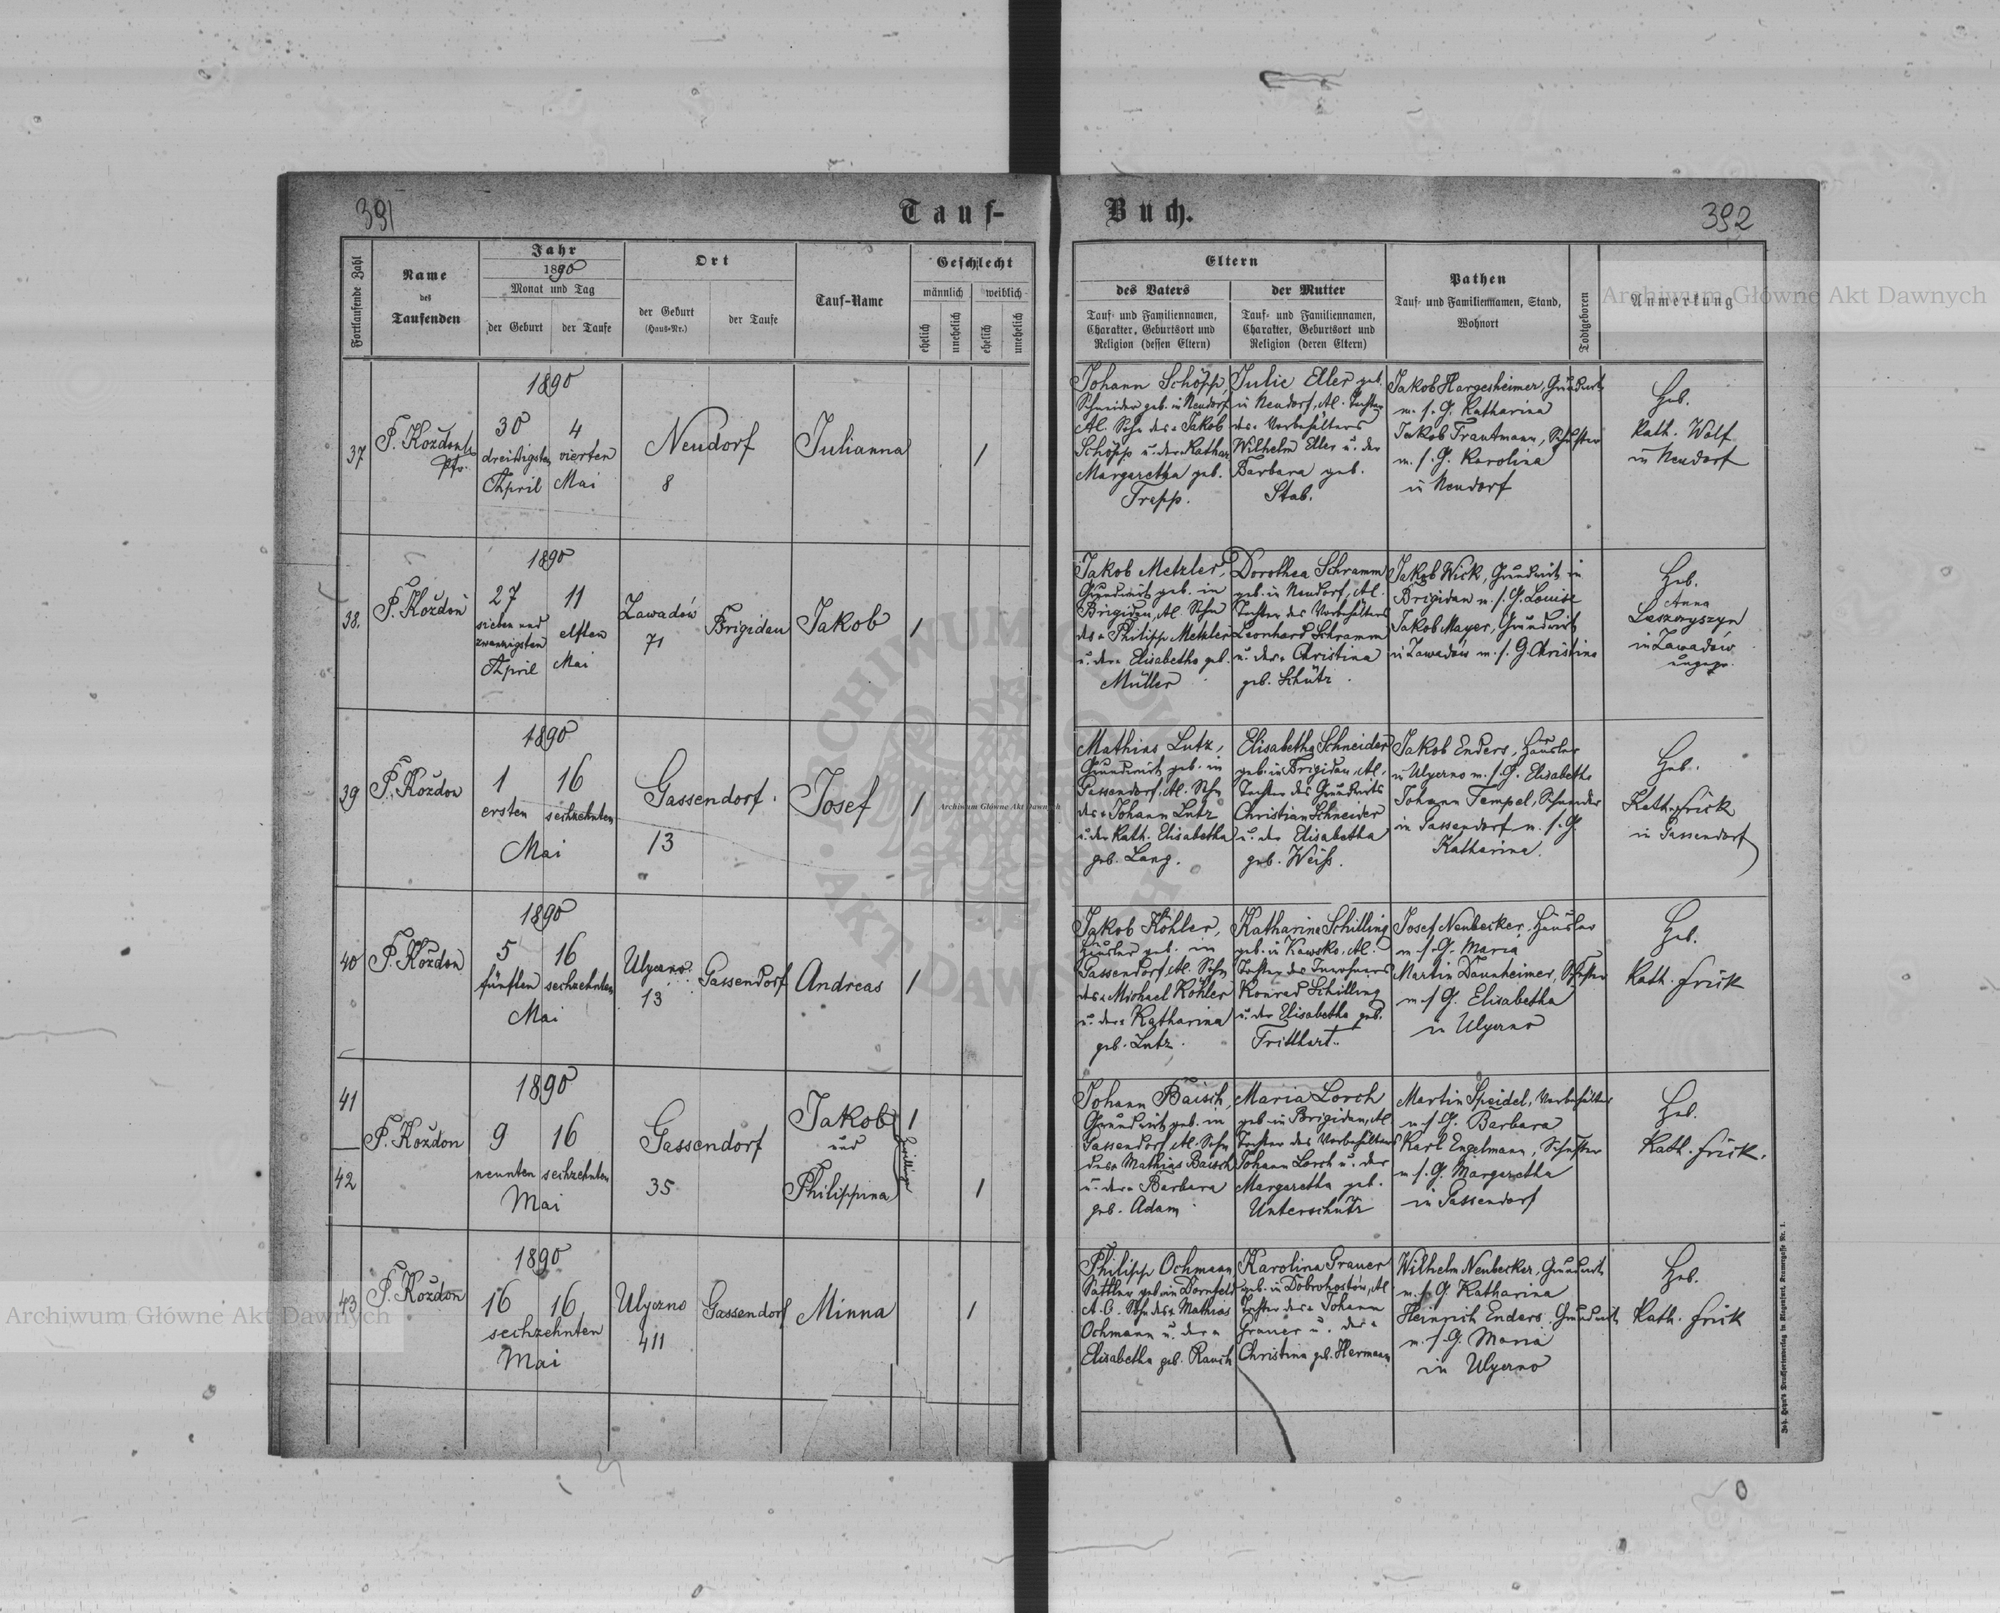 391
Tauf-
Buch.
392
Fortlaufende Zahl
Name
des
Taufenden
Jahr
1890
Monat und Tag
der Geburt
der Taufe
Ort
der Geburt
(Haus-Nr.)
der Taufe
Tauf-Name
Geschlecht
männlich
weiblich
ehelich
unehelich
ehelich
unehelich
Eltern
des Vaters
Tauf- und Familiennamen,
Charakter, Geburtsort und
Religion (dessen Eltern)
der Mutter
Tauf- und Familiennamen,
Charakter, Geburtsort und
Religion (deren Eltern)
Pathen
Tauf- und Familiennamen, Stand,
Wohnort
Todtgeboren
Anmerkung
37
F. Kozdon
Pfr.
1890
30
dreißigsten
April
4
vierten
Mai
Neudorf
8
Julianna
1
Johann Schöpp,
Schneider geb. in Neudorf
Al. Sohn des + Jakob
Schöpp u. der + Kathar.
Margaretha geb.
Trepp.
Julie Eller geb.
in Neudorf, Al. Tochter
des + Vorbehälters
Wilhelm Eller u. der
Barbara geb.
Stab.
Jakob Hargesheimer, Grundwirt
m. s. G. Katharina
Jakob Trautmann, Schuster
m. s. G. Karolina
in Neudorf
Heb.
Kath. Wolf
in Neudorf
38.
F. Kozdon
1890
27
sieben und
zwanzigsten
April
11
elften
Mai
Zawadów
71
Brigidau
Jakob
1
Jakob Metzler,
Grundwirt geb. in
Brigidau, Al. Sohn
des + Philipp Metzler
u. der + Elisabetha geb.
Müller
Dorothea Schramm
geb. in Neudorf, Al.
Tochter des Vorbehälters
Leonhard Schramm
u. der + Christina
geb. Schütz.
Jakob Wick, Grundwirt in
Brigidau m. s. G. Louise
Jakob Mayer, Grundwirt
in Zawadów m. s. G. Christina
Heb.
Anna
Leszczyszyn
in Zawadów
ungepr.
39
F. Kozdon
1890
1
ersten
16
sechzehnten
Mai
Gassendorf.
13
Josef
1
Mathias Lutz,
Grundwirt geb. in
Gassendorf, Al. Sohn
des + Johann Lutz
u. der Kath. Elisabetha
geb. Lang.
Elisabetha Schneider
geb. in Brigidau, Al.
Tochter des Grundwirts
Christian Schneider
u. der Elisabetha
geb. Weiß.
Jakob Enders, Häusler
in Ulyczno m. s. G. Elisabetha
Johann Tempel, Schneider
in Gassendorf m. s. G.
Katharina.
Heb.
Kath. Frick
in Gassendorf
40
F. Kozdon
1890
5
fünften
16
sechzehnten
Mai
Ulyczno
13
Gassendorf
Andreas
1
Jakob Köhler,
Häusler geb. in
Gassendorf, Al. Sohn
des + Michael Köhler
u. der + Katharina
geb. Lutz.
Katharine Schilling
geb. in Kawsko, Al.
Tochter des Inwohners
Konrad Schilling
u. der Elisabetha geb.
Tritthart.
Josef Neubecker, Häusler
m. s. G. Maria
Martin Daunheimer, Schuster
m. s. G. Elisabetha
in Ulyczno
Heb.
Kath. Frick
41
42
F. Kozdon
1890
9
neunten
16
sechzehnten
Mai
Gassendorf
35
Jakob
und
Philippina
Zwillinge
1
1
Johann Baisch,
Grundwirt geb. in
Gassendorf, Al. Sohn
des + Mathias Baisch
u. der + Barbara
geb. Adam
Maria Lorch
geb. in Brigidau, Al.
Tochter des Vorbehälters
Johann Lorch u. der
Margaretha geb.
Unterschütz
Martin Speidel, Vorbehälter
m. s. G. Barbara
Karl Engelmann, Schuster
m. s. G. Margaretha
in Gassendorf
Heb.
Kath. Frick.
43
F. Kozdon
1890
16
16
sechzehnten
Mai
Ulyczno
411
Gassendorf
Minna
1
Philipp Ochmann
Sattler geb. in Dornfeld
A. C. Sohn des + Mathias
Ochmann u. der +
Elisabetha geb. Rauch
Karolina Grauer
geb. in Dobrohostów, Al.
Tochter des + Johann
Grauer u. der +
Christina geb. Hermann
Wilhelm Neubecker, Grundwirt
m. s. G. Katharina
Heinrich Enders, Grundwirt
m. s. G. Maria
in Ulyczno
Heb.
Kath. Frick
Archiwum Główne Akt Dawnych
Archiwum Główne Akt Dawnych
Archiwum Główne Akt Dawnych
ARCHIWUM GŁÓWNE AKT DAWNYCH